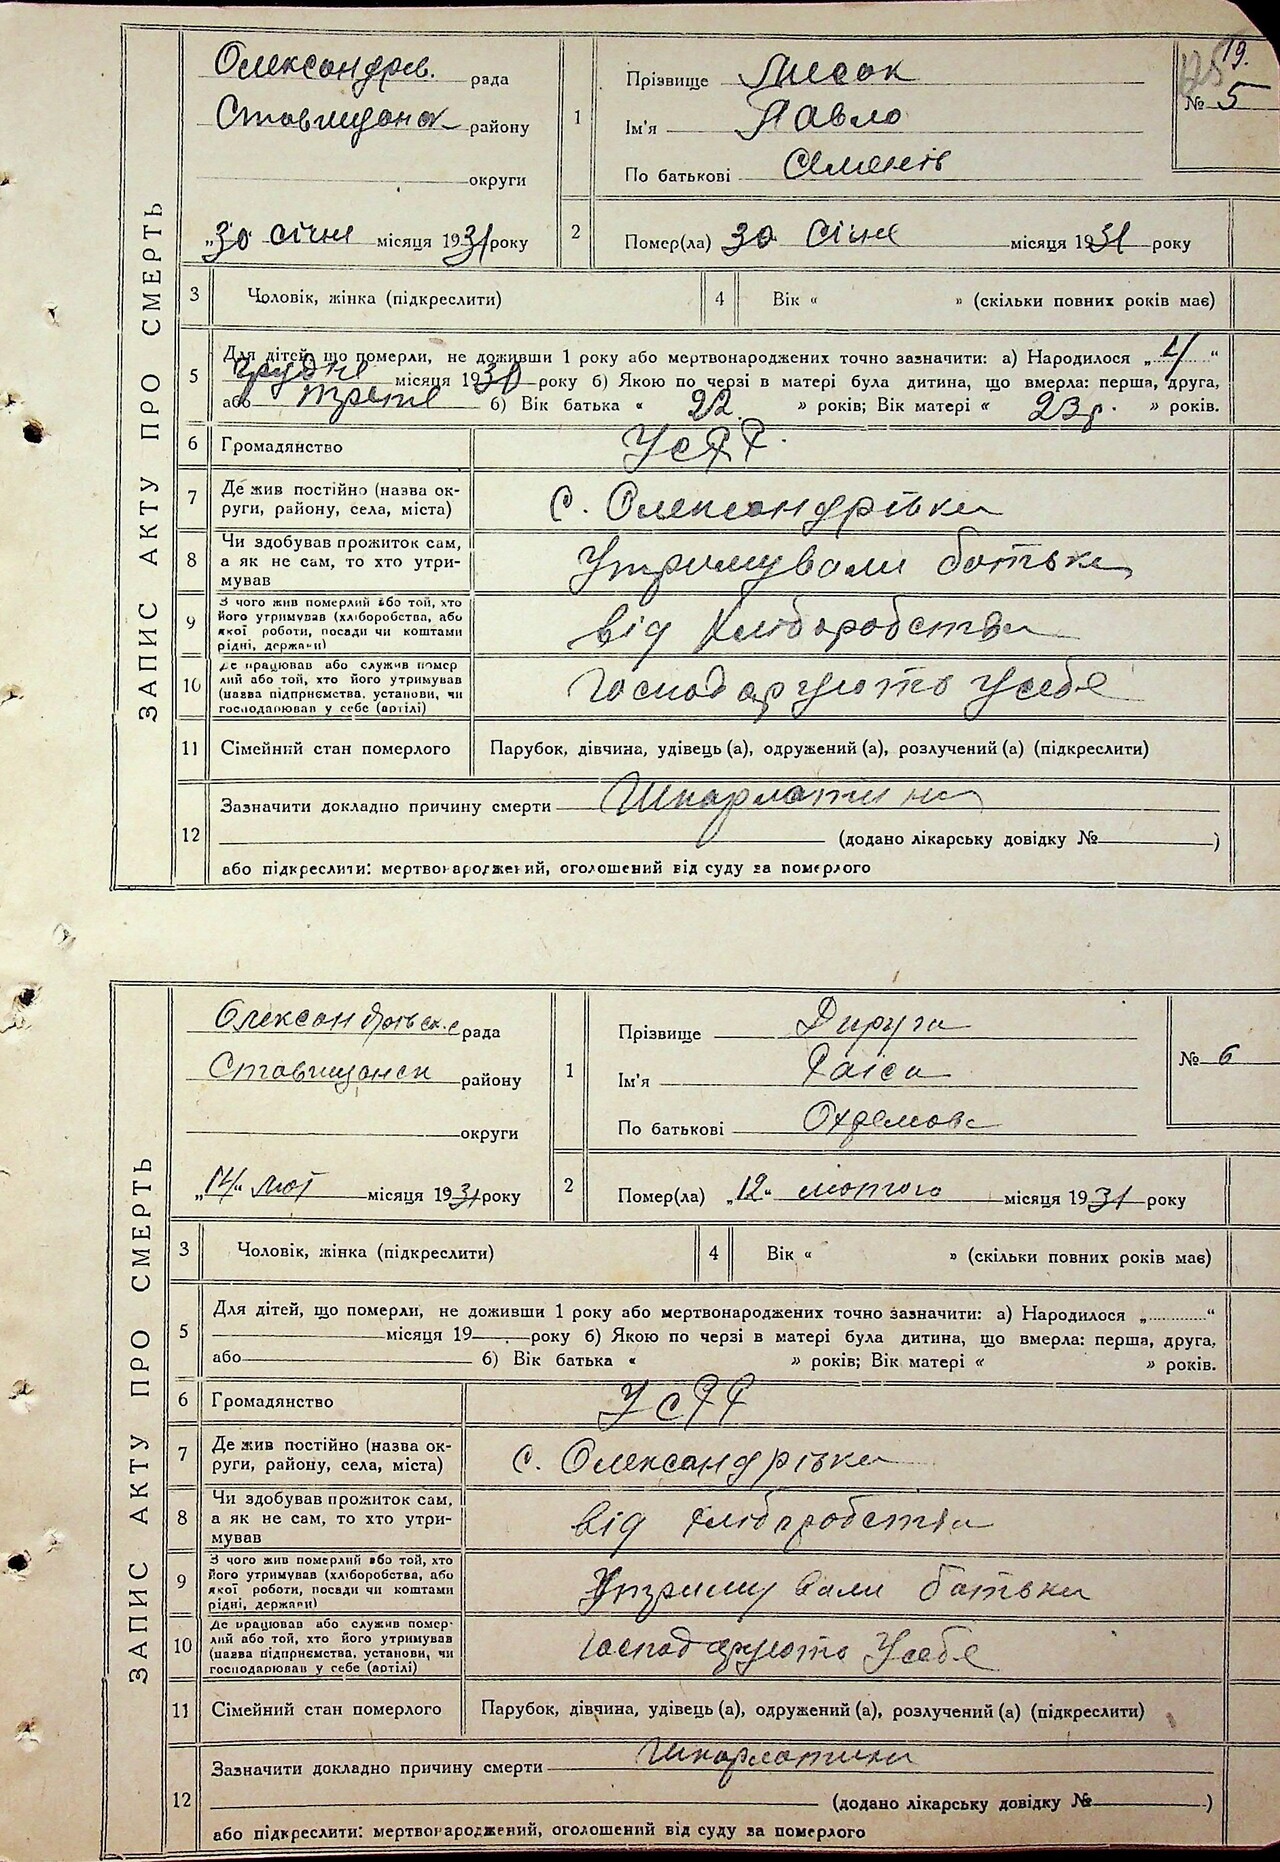 19.
125
ЗАПИС АКТУ ПРО СМЕРТЬ
Олександрів. рада
Ставищанск району
округи
„30 січня місяця 1931 року
1 Прізвище Лисак
Ім'я Павло
По батькові Семенів
№ 5
2 Помер(ла) 30 Січня місяця 1931 року
3 Чоловік, жінка (підкреслити)
4 Вік « » (скільки повних років має)
5 Для дітей, що померли, не доживши 1 року або мертвонароджених точно зазначити: а) Народилося „ 4 “
Грудня місяця 1930 року б) Якою по черзі в матері була дитина, що вмерла: перша, друга,
або третя б) Вік батька « 22 » років; Вік матері « 23 р. » років.
6 Громадянство УСРР.
7 Де жив постійно (назва ок-
руги, району, села, міста) с. Олександрівка
8 Чи здобував прожиток сам,
а як не сам, то хто утри-
мував Утримували батьки
9 З чого жив померлий або той, хто
його утримував (хліборобства, або
якої роботи, посади чи коштами
рідні, держави) від Хліборобства
10 Де працював або служив помер
лий або той, хто його утримував
(назва підприємства, установи, чи
господарював у себе (артілі) Господарують у себе
11 Сімейний стан померлого Парубок, дівчина, удівець (а), одружений (а), розлучений (а) (підкреслити)
12 Зазначити докладно причину смерти Шкарлатина
(додано лікарську довідку № )
або підкреслити: мертвонароджений, оголошений від суду за померлого
ЗАПИС АКТУ ПРО СМЕРТЬ
Олександрівск. рада
Ставищанск району
округи
„14“ лют місяця 1931 року
1 Прізвище Дируга
Ім'я Раіса
По батькові Охремова
№ 6
2 Помер(ла) „12“ лютого місяця 1931 року
3 Чоловік, жінка (підкреслити)
4 Вік « » (скільки повних років має)
5 Для дітей, що померли, не доживши 1 року або мертвонароджених точно зазначити: а) Народилося „ “
місяця 19 року б) Якою по черзі в матері була дитина, що вмерла: перша, друга,
або б) Вік батька « » років; Вік матері « » років.
6 Громадянство УСРР
7 Де жив постійно (назва ок-
руги, району, села, міста) с. Олександрівка
8 Чи здобував прожиток сам,
а як не сам, то хто утри-
мував від хліборобства
9 З чого жив померлий або той, хто
його утримував (хліборобства, або
якої роботи, посади чи коштами
рідні, держави) Утримували батьки
10 Де працював або служив помер-
лий або той, хто його утримував
(назва підприємства, установи, чи
господарював у себе (артілі) Господарують У себе
11 Сімейний стан померлого Парубок, дівчина, удівець (а), одружений (а), розлучений (а) (підкреслити)
12 Зазначити докладно причину смерти Шкарлатина
(додано лікарську довідку № )
або підкреслити: мертвонароджений, оголошений від суду за померлого